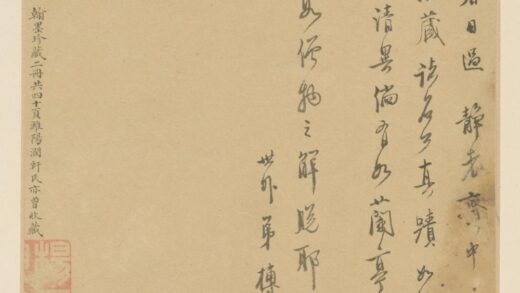 春日過 靜老齋中
藏諸名公真蹟如
清異倘有如蘭亭
如僧物之解脫耶
世外弟
翰墨珍藏二冊共四十頁雖陽潤軒氏亦曾收藏